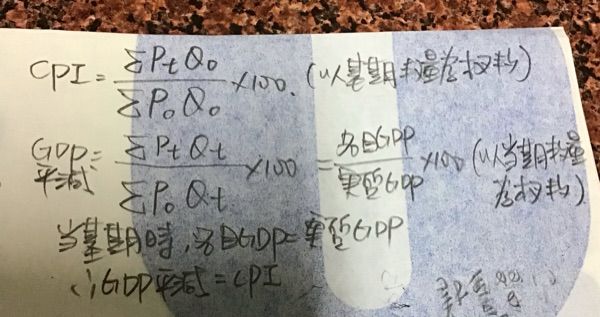 CPI = ΣPtQ0 / ΣP0Q0 ×100. (以基期數量為权数)
GDP平減 = ΣPtQt / ΣP0Qt ×100 = 名目GDP / 實質GDP ×100 (以当期數量為权数)
当基期時，名目GDP=實質GDP
∴GDP平減=CPI